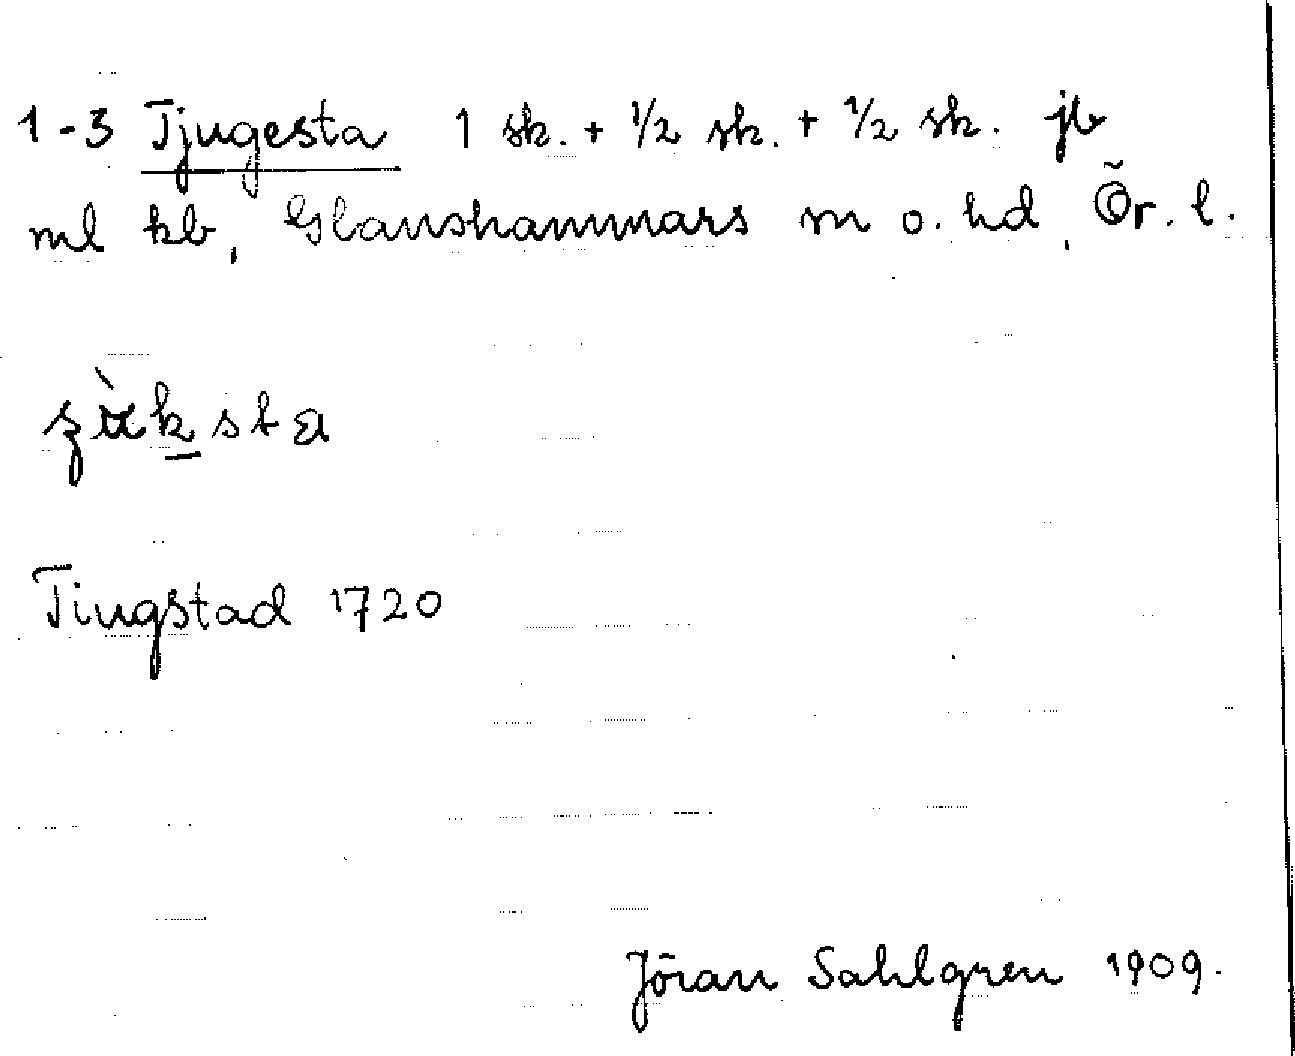 1-3 Tjugesta 1 sk. + 1/2 sk. + 1/2 sk. jb
ml kb, Glanshammars sn o. hd, Ör. l.
Tingstad 1720
Jöran Sahlgren 1909.